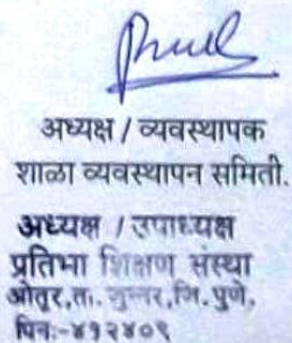 अध्यक्ष / व्यवस्थापक
शाळा व्यवस्थापन समिती.
अध्यक्ष / उपाध्यक्ष
प्रतिभा शिक्षण संस्था
ओतूर,ता. जुन्नर,जि.पुणे,
पिन:-४१२४०९